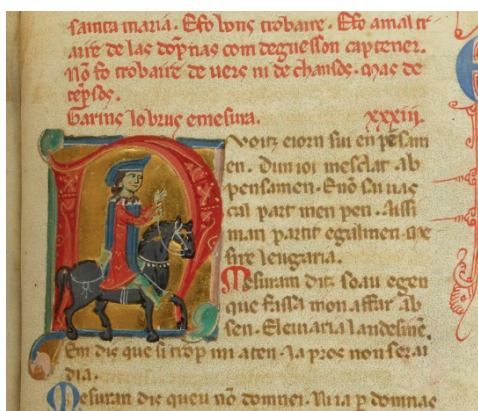 sancta maria. E fo bons trobaire. E fo amaestr
aire de las dopnas com deguesson captener.
Nõ fo trobaire de uers ni de chansos. mas de
tẽpsos.
Garins lo brus e mesura. xxxiii.
Nvoitz e iorn sui en pẽsam
en. Dun ioi mesclat ab
pensamen. E nõ sai uas
cal part men pen. Aissi
man partit egalmen. me
sure leugaria.
Mesuram ditz soau e gen
que fassa mon affar ab
sen. E leuiaria landesmẽ.
Em dis que si trop mi aten. Ja pros non serai
dia.
Mesuram dis queu nõ domnei. Ni ia p domnas